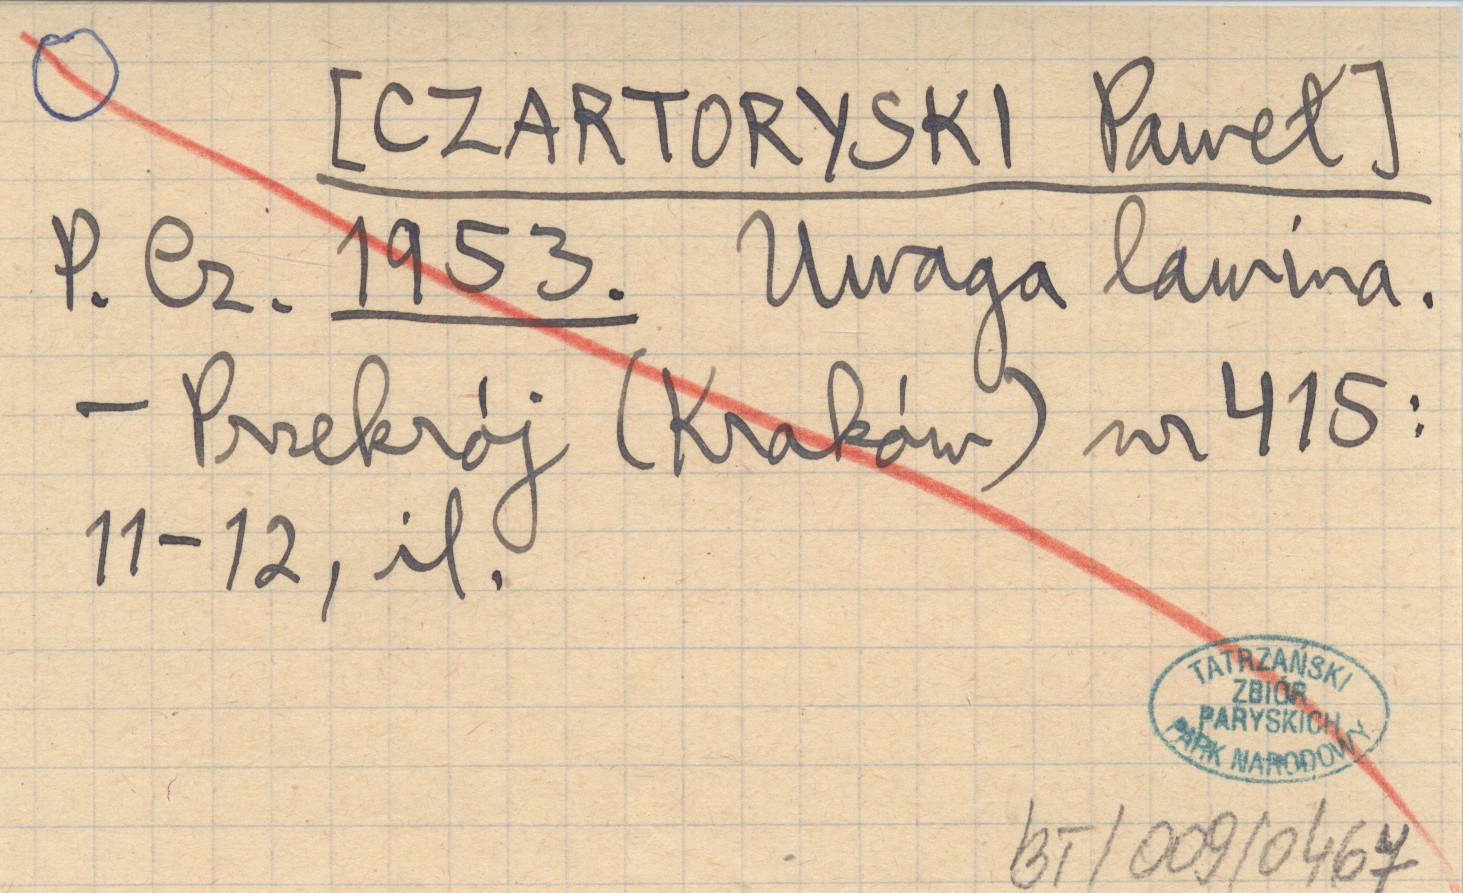 [CZARTORYSKI Paweł]
P. Cz. 1953. Uwaga lawina.
– Przekrój (Kraków) nr 415:
11–12, il.
TATRZAŃSKI
ZBIÓR
PARYSKICH
PARK NARODOWY
BT/009/0467